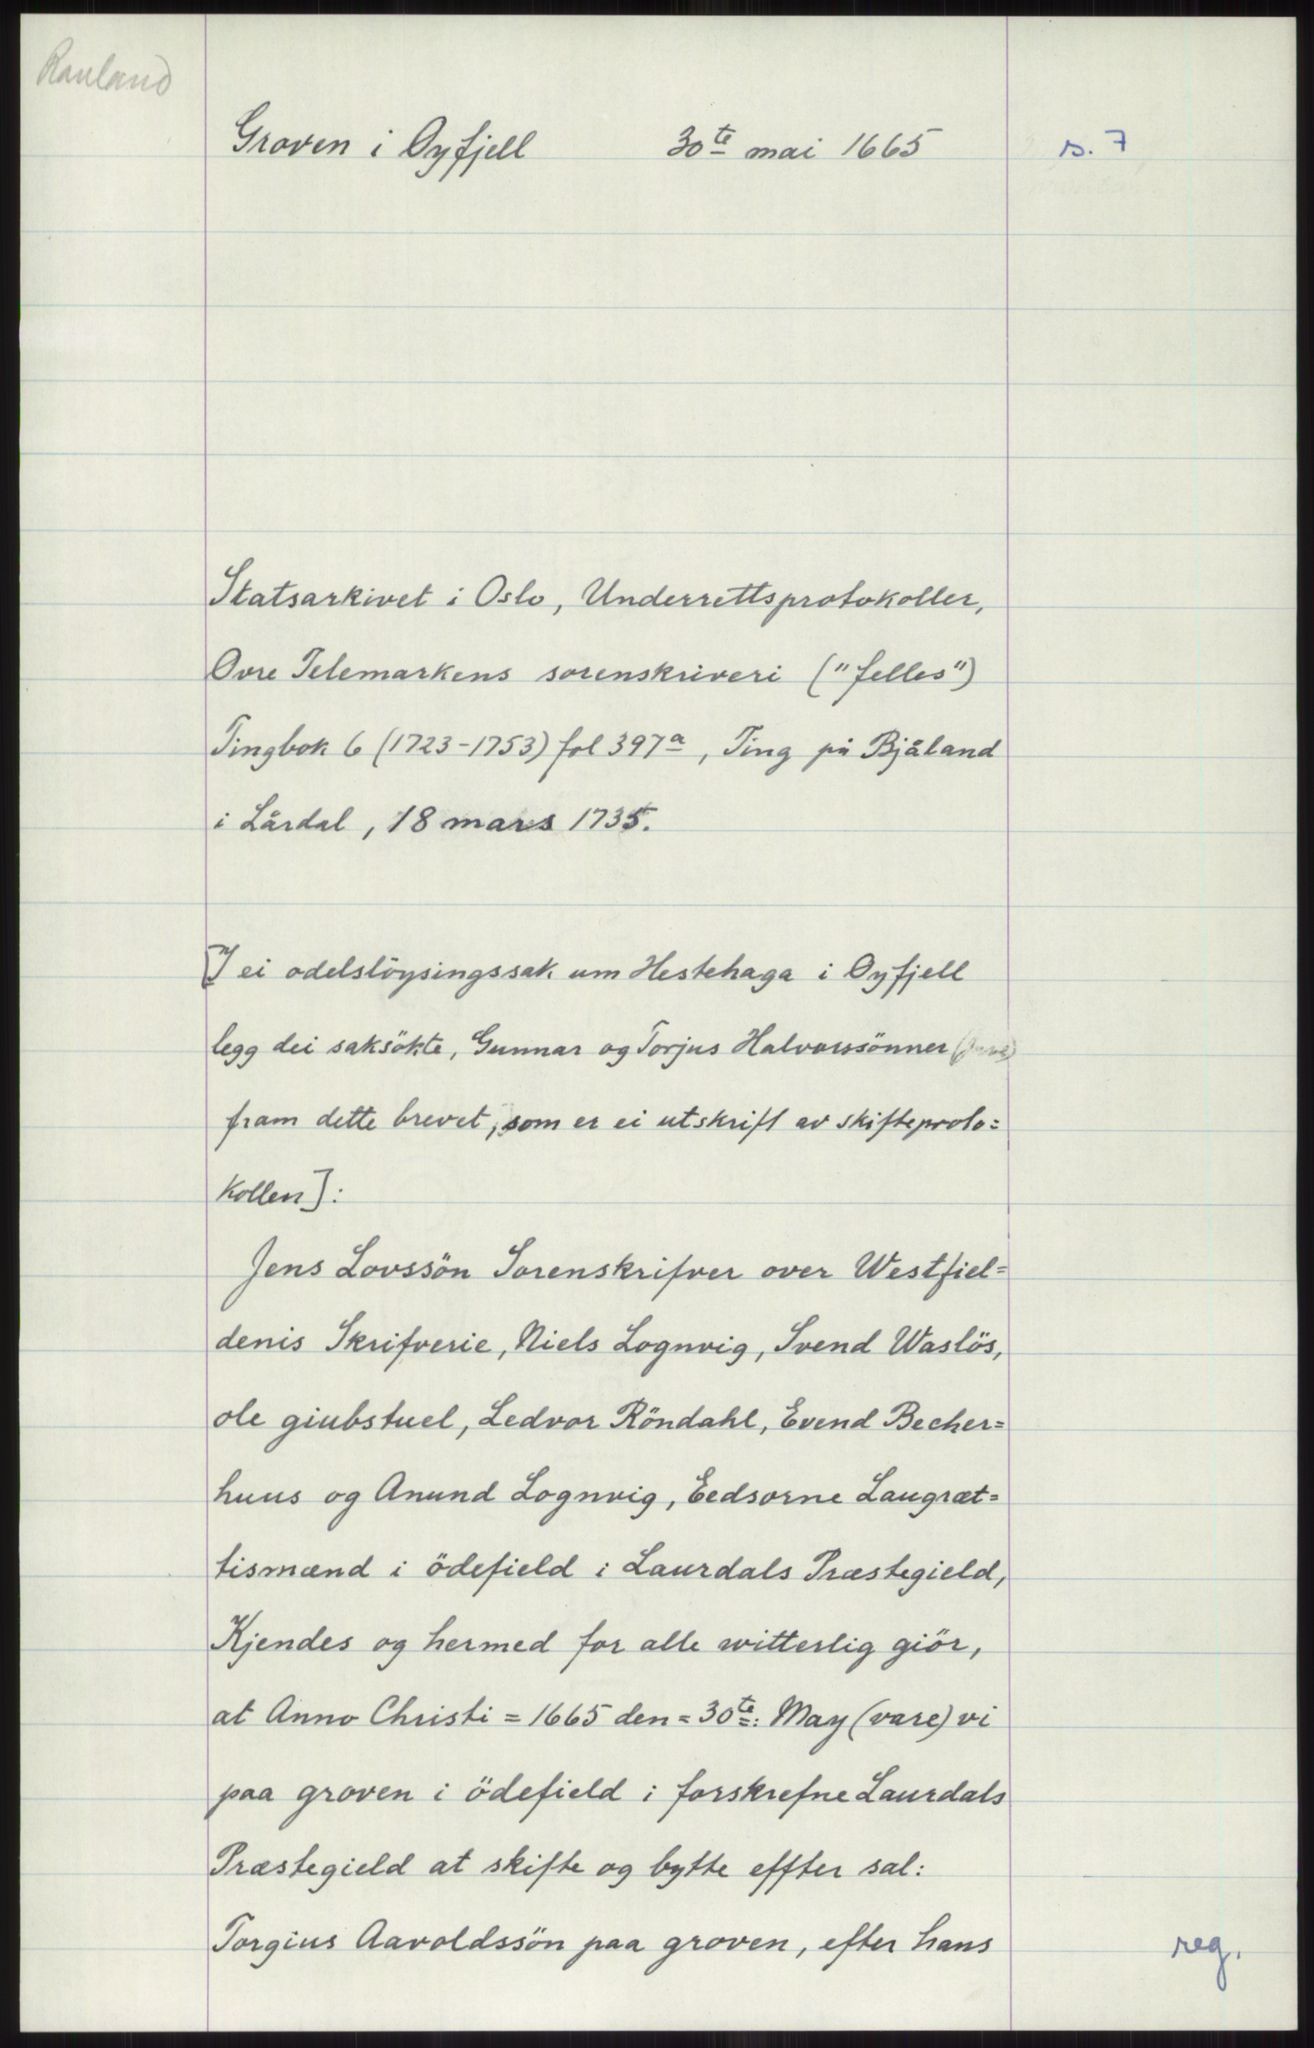 Rauland
Groven i Øyfjell 30te mai 1665 s. 7
Statsarkivet i Oslo, Underrettsprotokoller,
Øvre Telemarkens sorenskriveri ("felles")
Tingbok 6 (1723-1753) fol 397a, Ting på Bjåland
i Lårdal, 18 mars 1735.
[I ei odelslöysingssak um Hestehaga i Øyfjell
legg dei saksökte, Gunnar og Torjus Halvorssönner
fram dette brevet, som er ei utskrift av skifteproto=
kollen]:
Jens Lovssön Sorenskrifver over Westfiel=
denis Skrifverie, Niels Lognvig, Svend Waslös,
ole giubstuel, Ledvor Röndahl, Evend Becher=
huus og Anund Lognvig, Eedsorne Laugræt=
tismænd i ödefield i Laurdals Præstegield,
Kjendes og hermed for alle witterlig giör,
at Anno Christi = 1665 den = 30te: May (vare) vi
paa groven i ödefield i forskrefne Laurdals
Præstegield at skifte og bytte effter sal:
Torgius Aavoldssön paa groven, efter hans
reg.